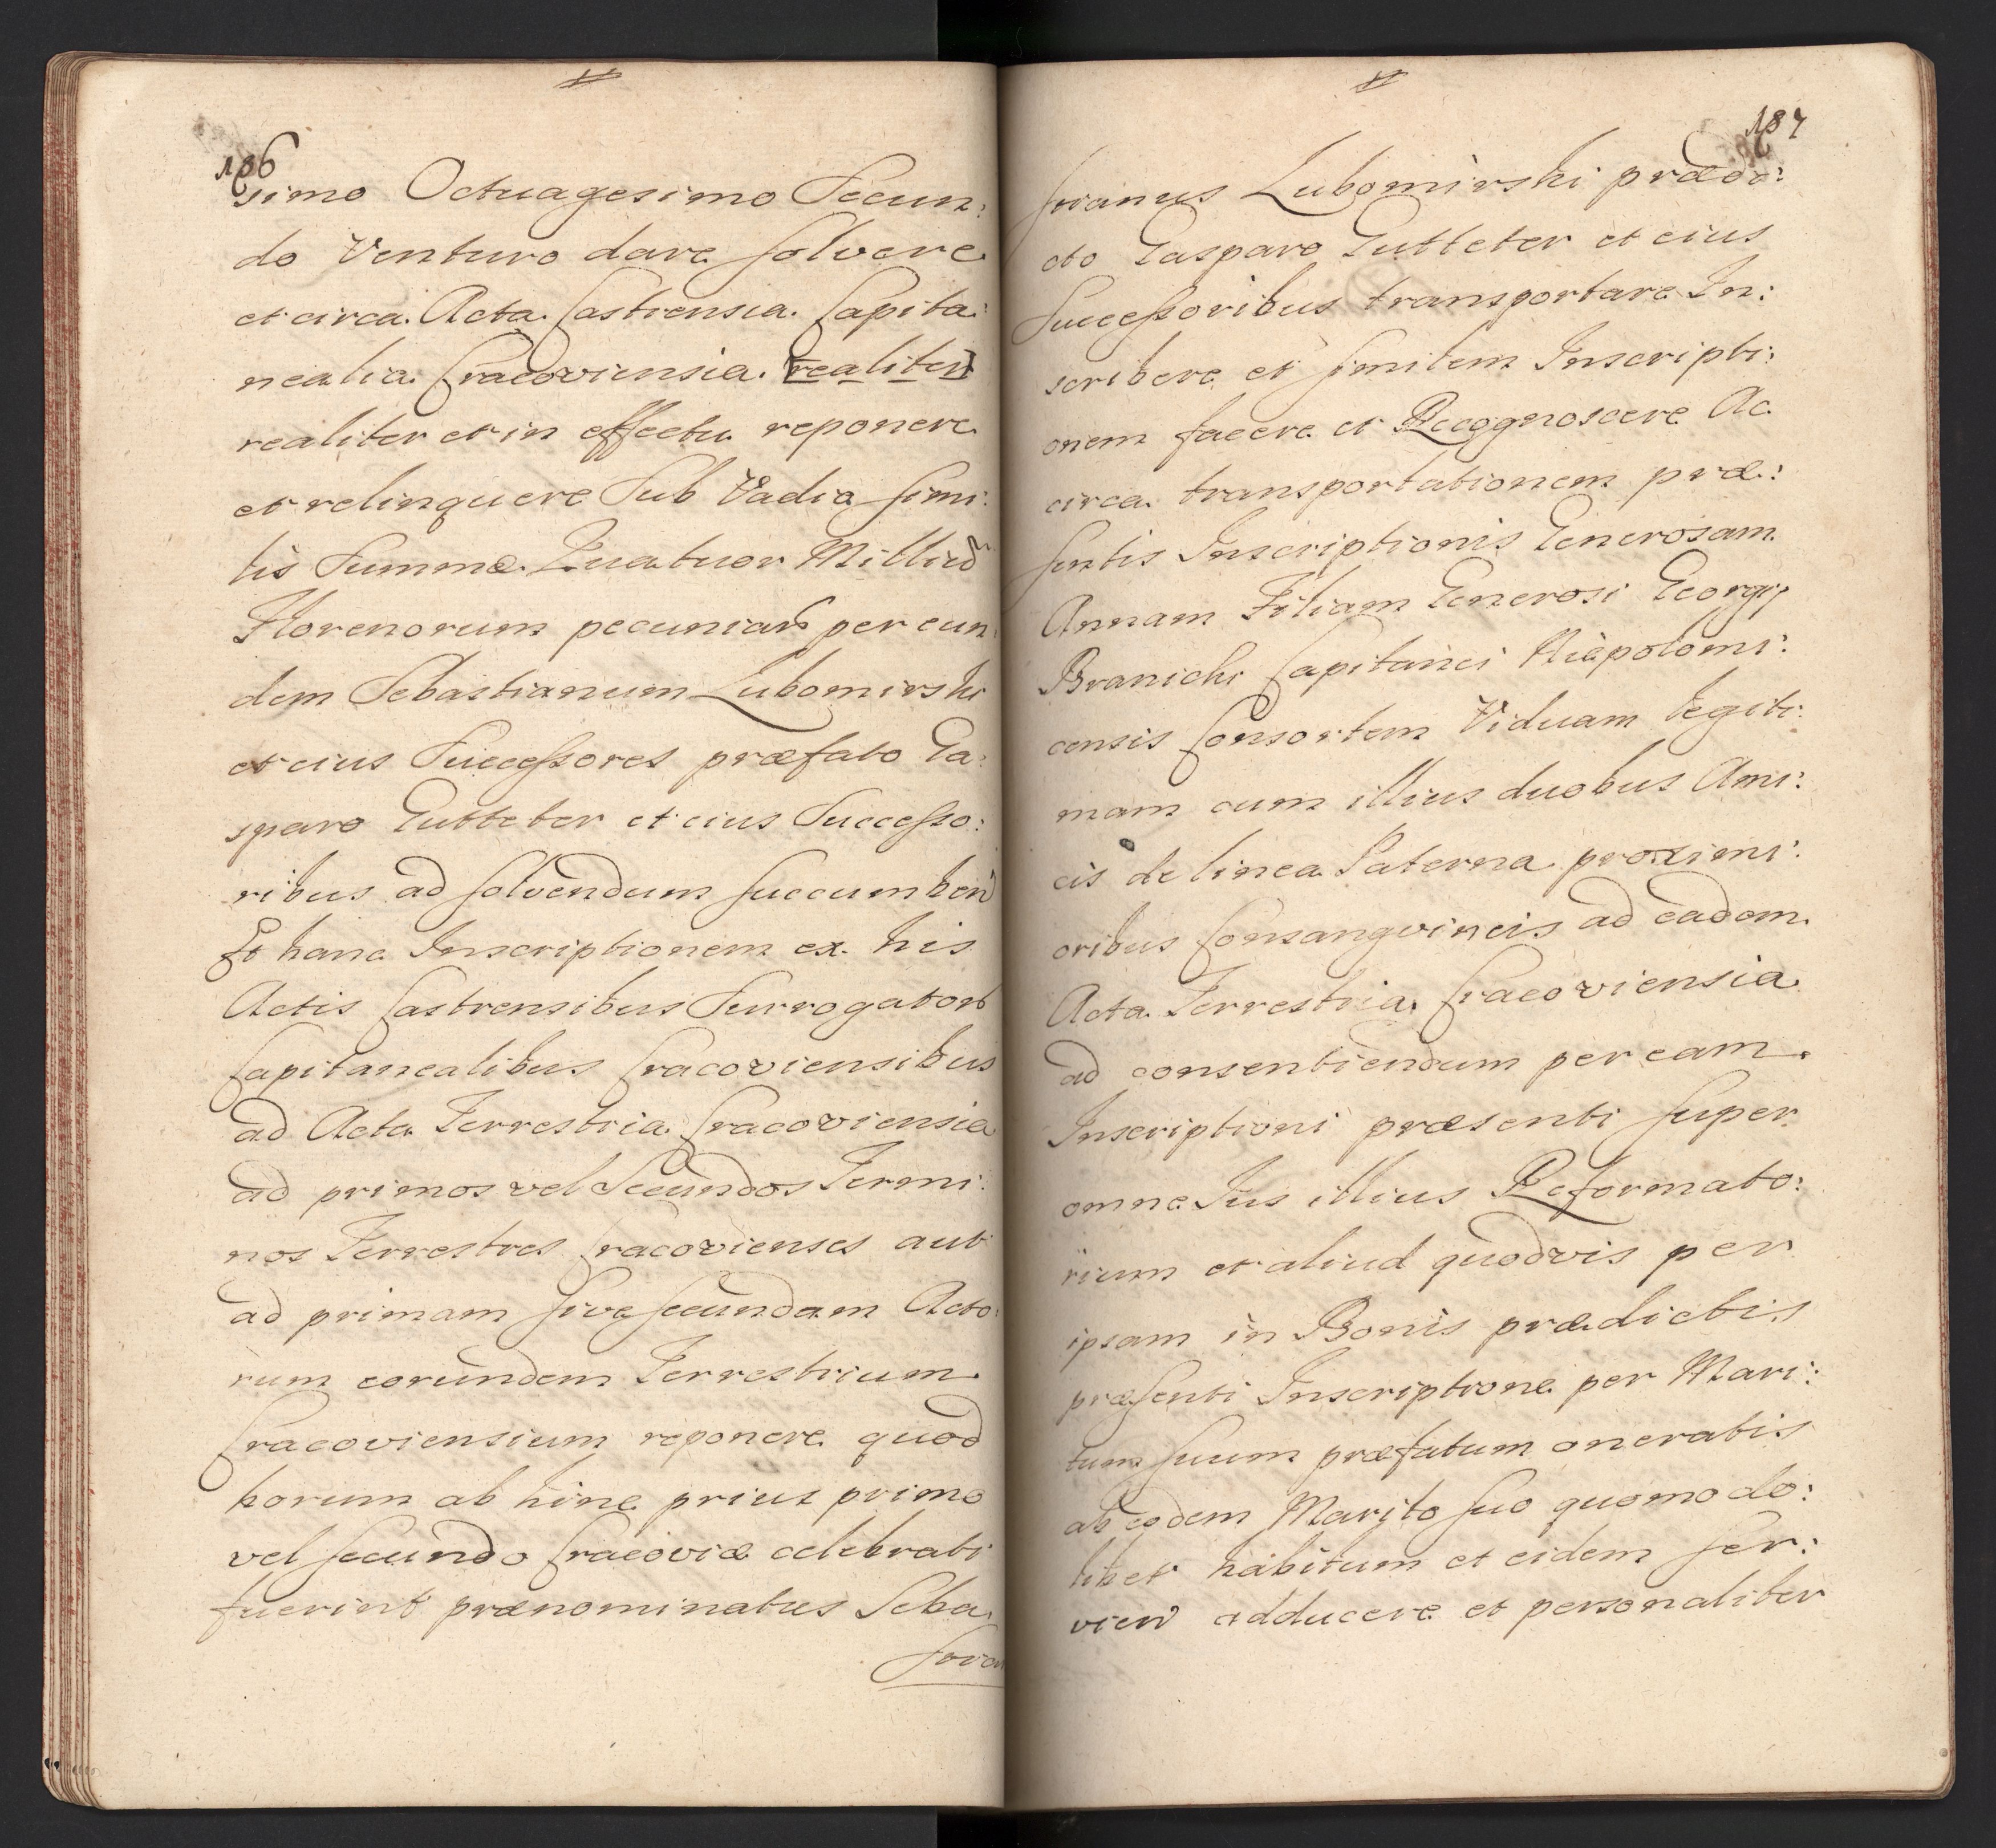 186
simo Octuagesimo Secun:
do Venturo dare solvere
et circa Acta Castrensia Capita:
nealia Cracoviensia [realiter]
realiter et in effectu reponere
et relinquere Sub Vadio simi:
lis Summæ Quatuor Milliu
Florenorum pecuniar per eun:
dem Sebastianum Lubomirski
et eius Successores præfato Ga:
sparo Gutteter et eius Successo:
ribus ad solvendum succumben
Et hanc Inscriptionem ex his
Actis Castrensibus Surrogator
Capitanealibus Cracoviensibus
ad Acta Terrestria Cracoviensia
ad primos vel Secundos Termi:
nos Terrestres Cracovienses aut
ad primam sive secundam Acto:
rum eorundem Terrestrium
Cracoviensium reponere quod
horum ab hinc prius primo
vel secundo Cracoviæ celebrati
fuerint prænominatus Seba:
187
stianus Lubomirski prædi:
cto Gasparo Gutteter et eius
Successoribus transportare In:
scribere et similem Inscripti:
onem facere et Recognoscere Ac
circa transportationem præ:
sentis Inscriptionis Generosam
Annam Filiam Generosi Georgij
Branicki Capitanei Niepolomi:
censis Consortem Viduam legiti:
mam cum illius duobus Ami:
cis de linea Paterna proximi:
oribus Consangvineis ad eadem
Acta Terrestria Cracoviensia
ad consentiendum per eam
Inscriptioni præsenti super
omne Jus illius Reformato:
rium et aliud quodvis per
ipsam in Bonis prædictis
præsenti Inscriptione per Mari:
tum suum præfatum oneratis
ab eodem Marito suo quomodo:
libet habitum et eidem ser:
vien adducere et personaliter